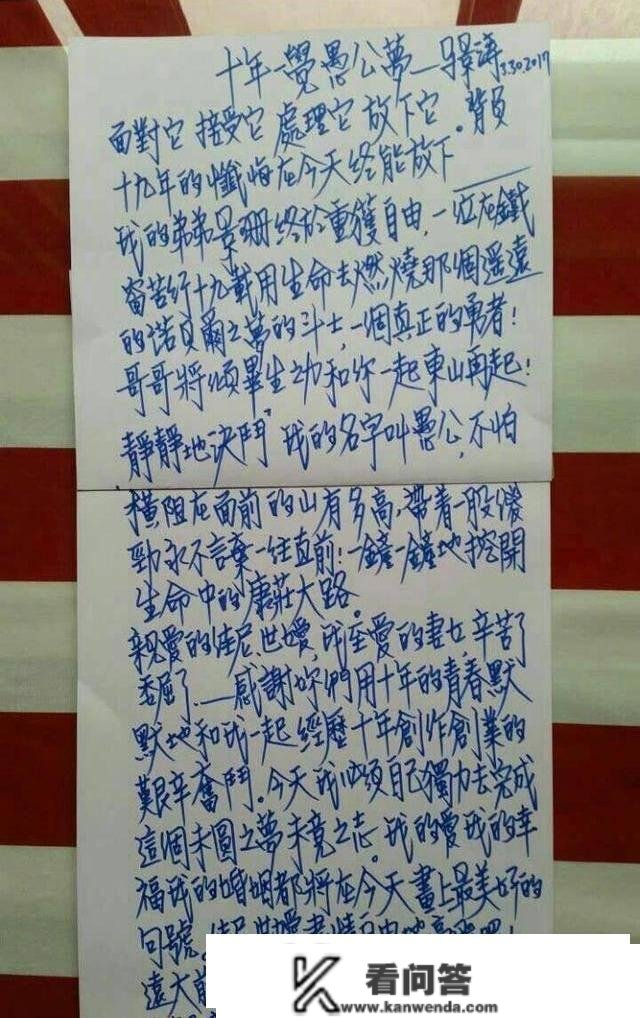 十年一覺愚公夢—馬景濤 3.30.2017
面對它 接受它 處理它 放下它。背負
十九年的懺悔在今天終能放下——
我的弟弟景珊終於重獲自由，一位在鐵
窗苦行十九載用生命去燃燒那個遥遠
的诺貝爾之夢的斗士，一個真正的勇者！
哥哥將傾畢生之力和你一起東山再起！
靜靜地決鬥 我的名字叫愚公，不怕
橫阻在面前的山有多高，帶著一股傻
勁永不言棄一往直前！一鏟一鏟地挖開
生命中的康莊大路。
親愛的佳尼，世嫒，我至愛的妻女，辛苦了
委屈了……感謝妳們用十年的青春默
默地和我一起 經歷十年創作創業的
艱辛奮鬥。今天我必須自己獨力去完成
這個未圓之夢未竟之志。我的愛我的幸
福我的婚姻都將在今天畫上最美好的
句號。
遠大前
看问答
www.kanwenda.com